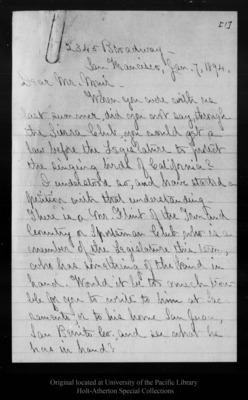 [?]
2345 Broadway -
San Francisco, Jan. 7, 1894.
Dear Mr. Muir -
When you were with us
last summer, did you not say through
the Sierra Club, you would get a
law before the Legislature to protect
the singing birds of California?
I understood so, and have started a
petition with that understanding -
There is a Mr. Flint of the
Country or Sportsman Club who is a
member of the Legislature this term,
who has something of the kind in
hand. Would it be too much trou-
ble for you to write to him at Sac-
ramento or to his home San Juan,
San Benito Co. and see what he
has in hand?
Original located at University of the Pacific Library
Holt-Atherton Special Collections